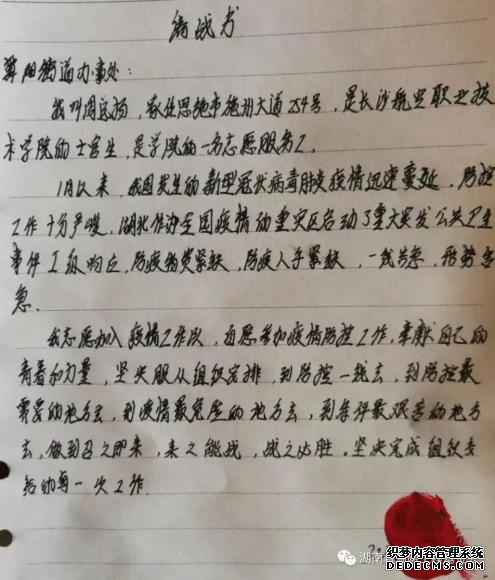 请战书
舞阳街道办事处:
我叫周远扬,家住恩施市施州大道254号,是长沙航空职业技
术学院的士官生,是学院的一名志愿服务工。
1月以来,我国发生的新型冠状病毒肺炎疫情迅速蔓延,防控
工作十分严峻,湖北作为全国疫情的重灾区启动了重大突发公共卫生
事件I级响应,防疫物资紧缺,防疫人手紧缺,一线告急,形势告
急.
我志愿加入疫情工作队,自愿参加疫情防控工作,奉献自己的
青春和力量,坚决服从组织安排,到防控一线去,到防控最
需要的地方去,到疫情最危险的地方去,到条件最艰苦的地方
去,做到召之即来,来之能战,战之必胜.坚决完成组织交
给的每一次工作.
湖南
织梦内容管理系统
DEDECMS.COM